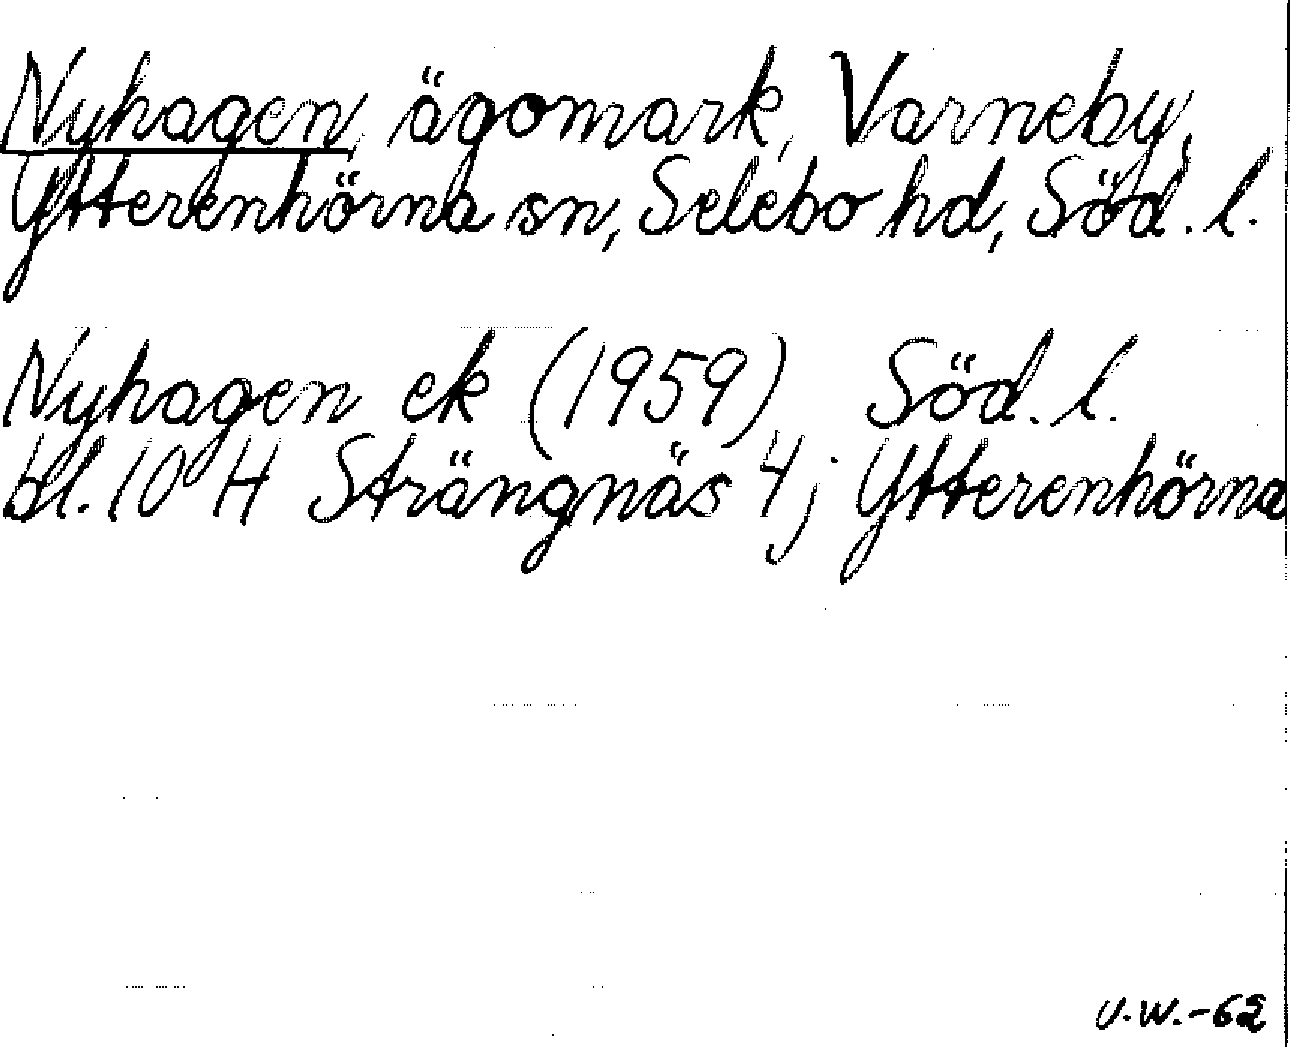 Nyhagen, ägomark, Varneby,
Ytterenhörna sn, Selebo hd, Söd. l.
Nyhagen ek (1959) Söd. l.
bl. 10 H Strängnäs 4 j Ytterenhörna
U.W.-62